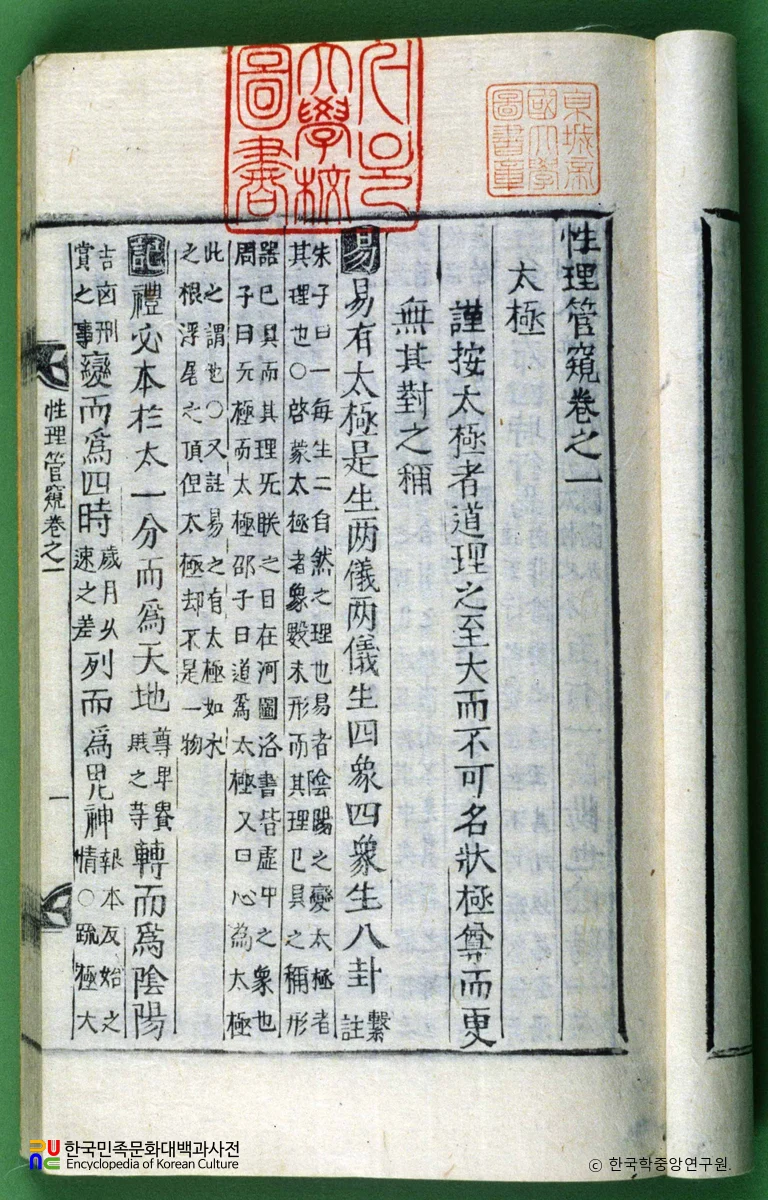 서울
大學校
圖書
京城帝
國大學
圖書章
性理管窺卷之一
太極
謹按太極者道理之至大而不可名狀極尊而更
無其對之稱
易易有太極是生两儀两儀生四象四象生八卦繫註
朱子曰一每生二自然之理也易者陰陽之變太極者
其理也○啓蒙太極者象數未形而其理已具之稱形
器已具而其理无眹之目在河圖洛書皆虛中之象也
周子曰无極而太極邵子曰道爲太極又曰心為太極
此之謂也○又註易之有太極如木
之根浮尾之頂但太極却不是一物
記禮必本扵太一分而爲天地尊卑貴賎之等轉而爲陰陽
吉凶刑賞之事變而爲四時歲月久速之差列而爲鬼神報本反始之情○䟽極大
性理管窺卷之一
一
한국민족문화대백과사전
Encyclopedia of Korean Culture
© 한국학중앙연구원.